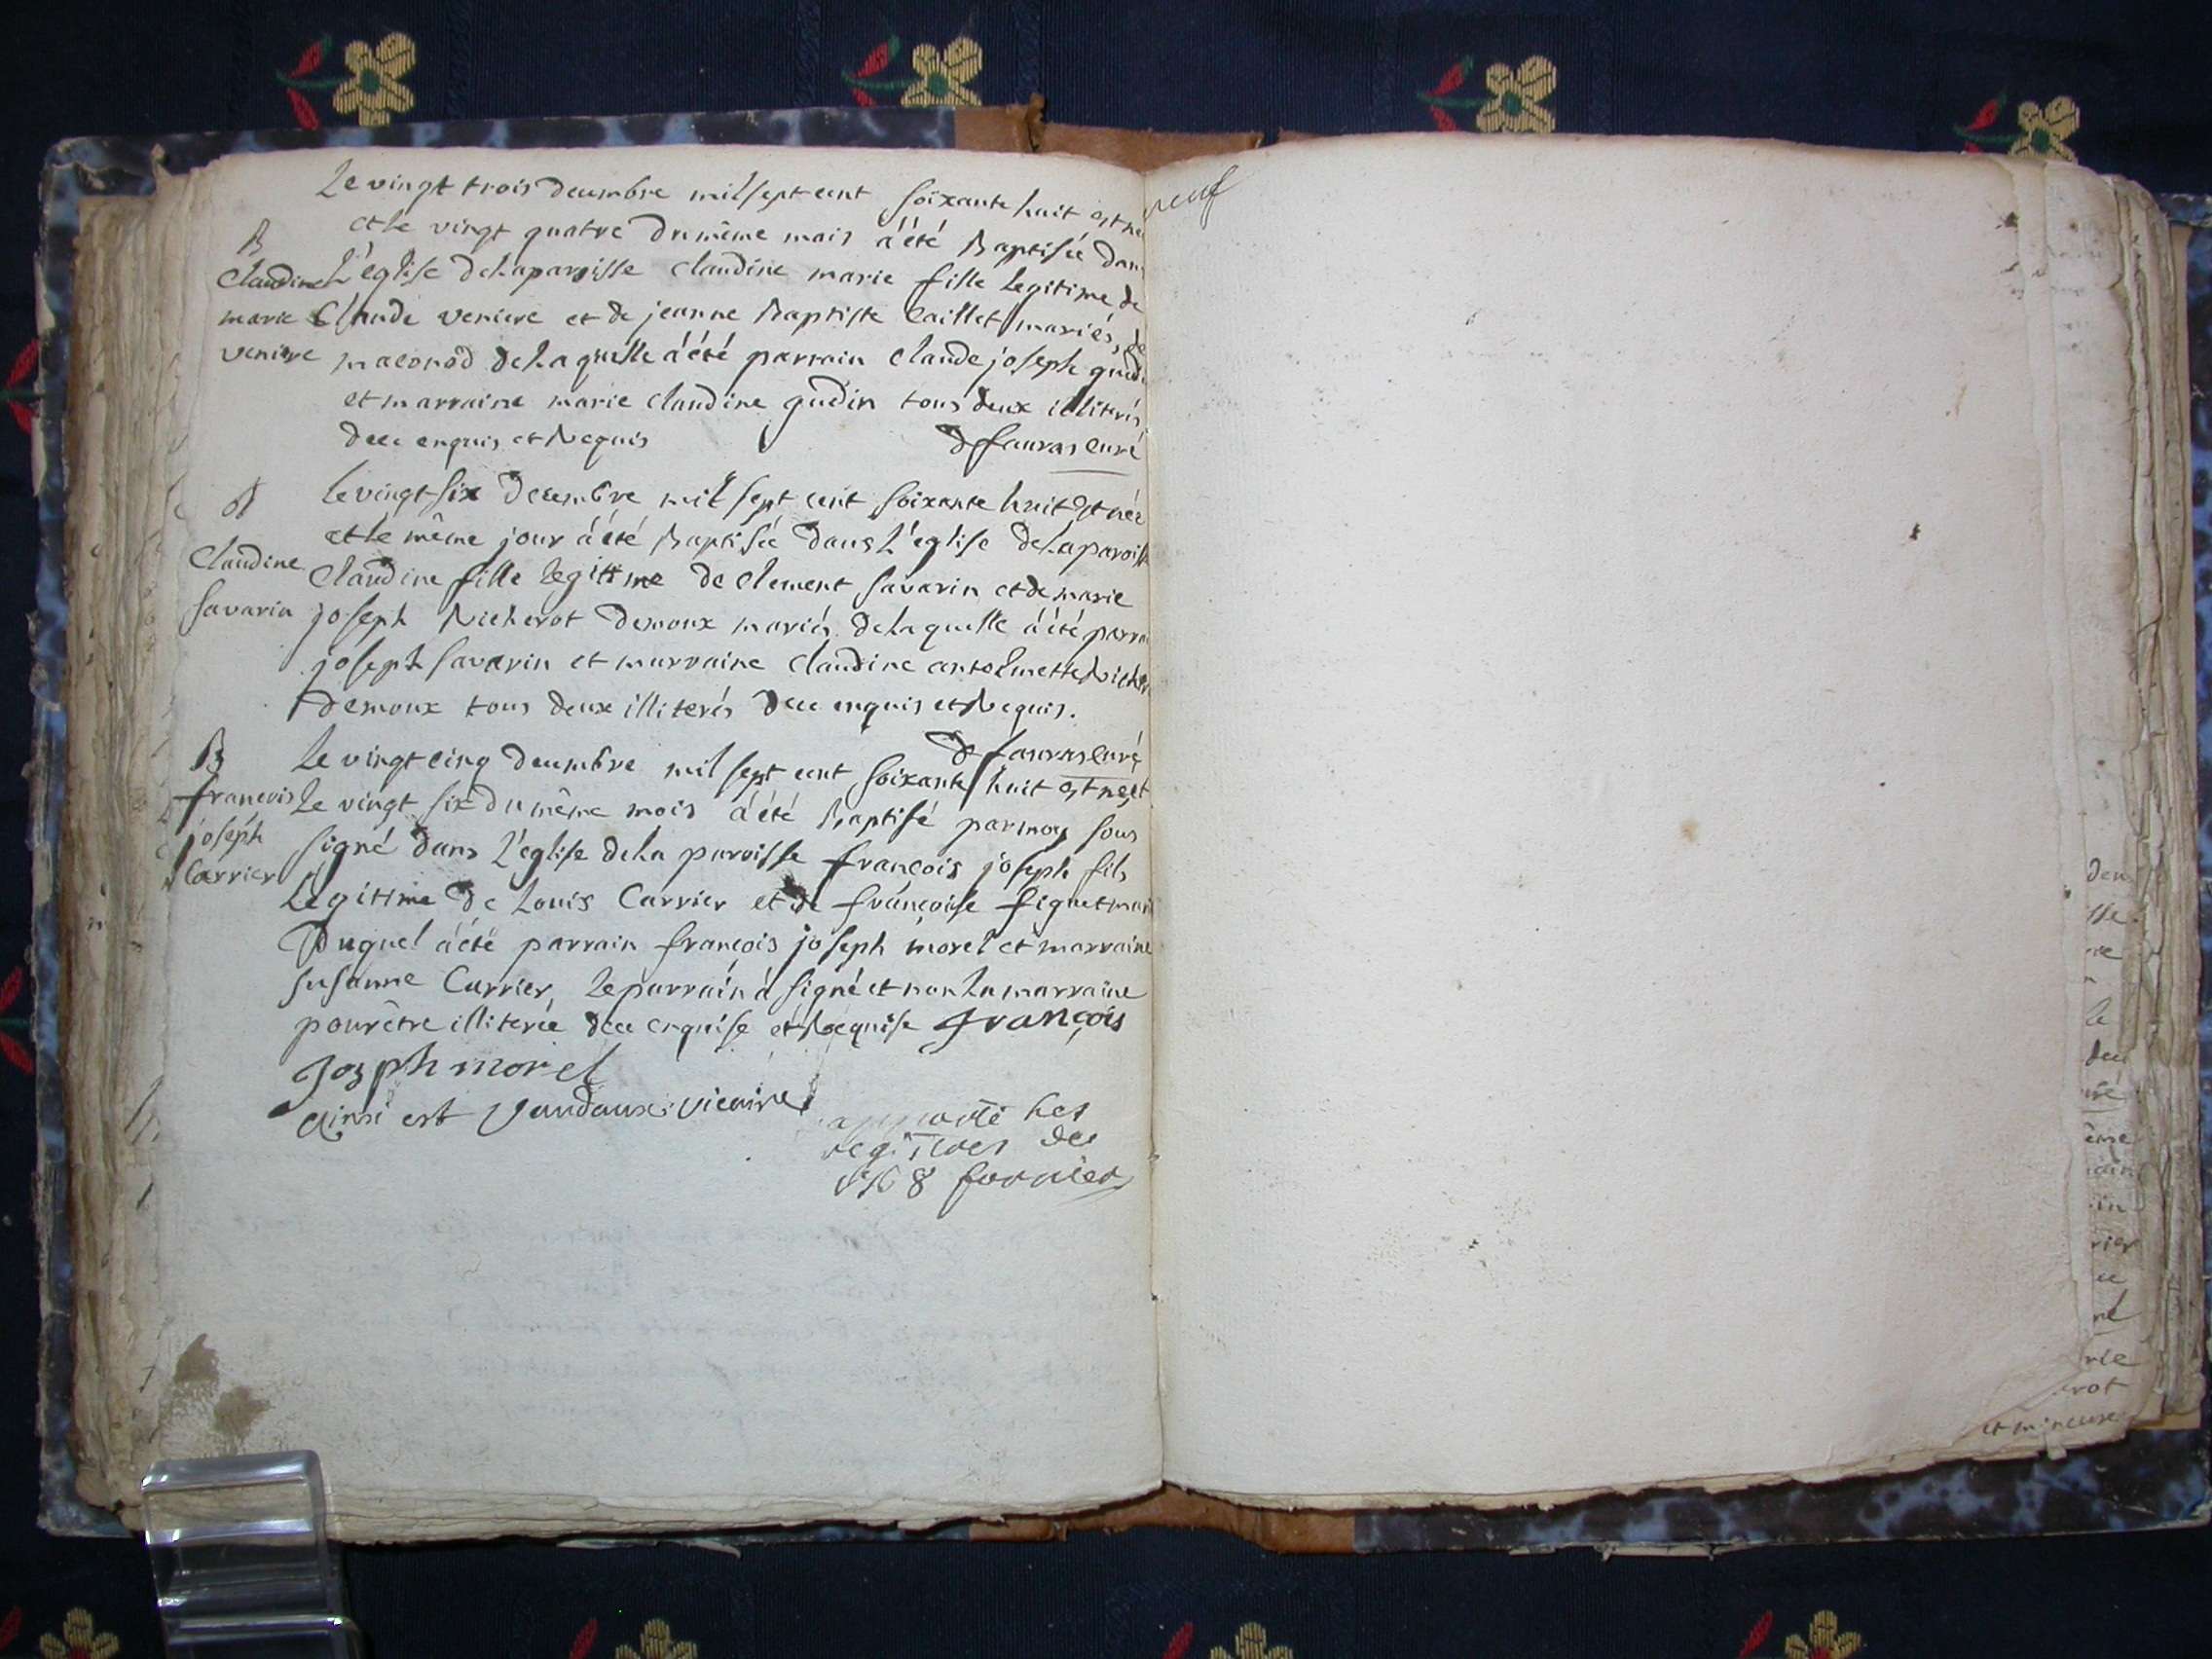 Le vingt trois decembre mil sept cent soixante huit est née
et le vingt quatre du même mois a été Baptisée dans
B
Claudine
marie
veniere
L'église de la paroisse claudine marie fille legitime de
Claude veniere et de jeanne Baptiste Caillet mariés, de
maconod de laquelle a été parrain claude joseph gudin
et marraine marie claudine gudin tous deux illiterés
de ce enquis et Requis
D fauras Curé
B
Claudine
savarin
le vingt six decembre mil sept cent soixante huit est née
et le même jour a été Baptisée dans L'église de la paroisse
Claudine fille legittime de Clement savarin et de marie
joseph Richerot demoux mariés de laquelle a été parrain
joseph savarin et marraine claudine antelmette Richerot
demoux tous deux illiterés de ce enquis et Requis.
D fauras Curé
B
francois
joseph
Carrier
Le vingt cinq decembre mil sept cent soixante huit est né et
le vingt six du même mois a été Baptisé par moy sous
signé dans l'église de la paroisse françois joseph fils
Légitime de Louis Carrier et de françoise figuet mariés
Duquel a été parrain françois joseph morel et marraine
susanne Carrier, le parrain a signé et non la marraine
pour être illiterée de ce enquise et Requise françois
Joseph morel
ainsi est Vandaux vicaire
apporté les
registres de
1768 fornier
neuf
dens
sse
rie
le
deu
uré
ême
rain
in
rier
ce
né
rie
erot
et mineure